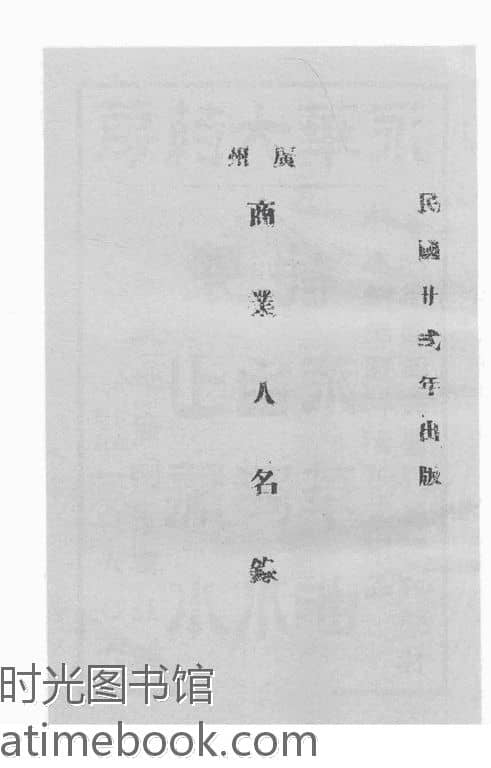 民國廿弍年出版
廣州
商業人名錄
时光图书馆
atimebook.com